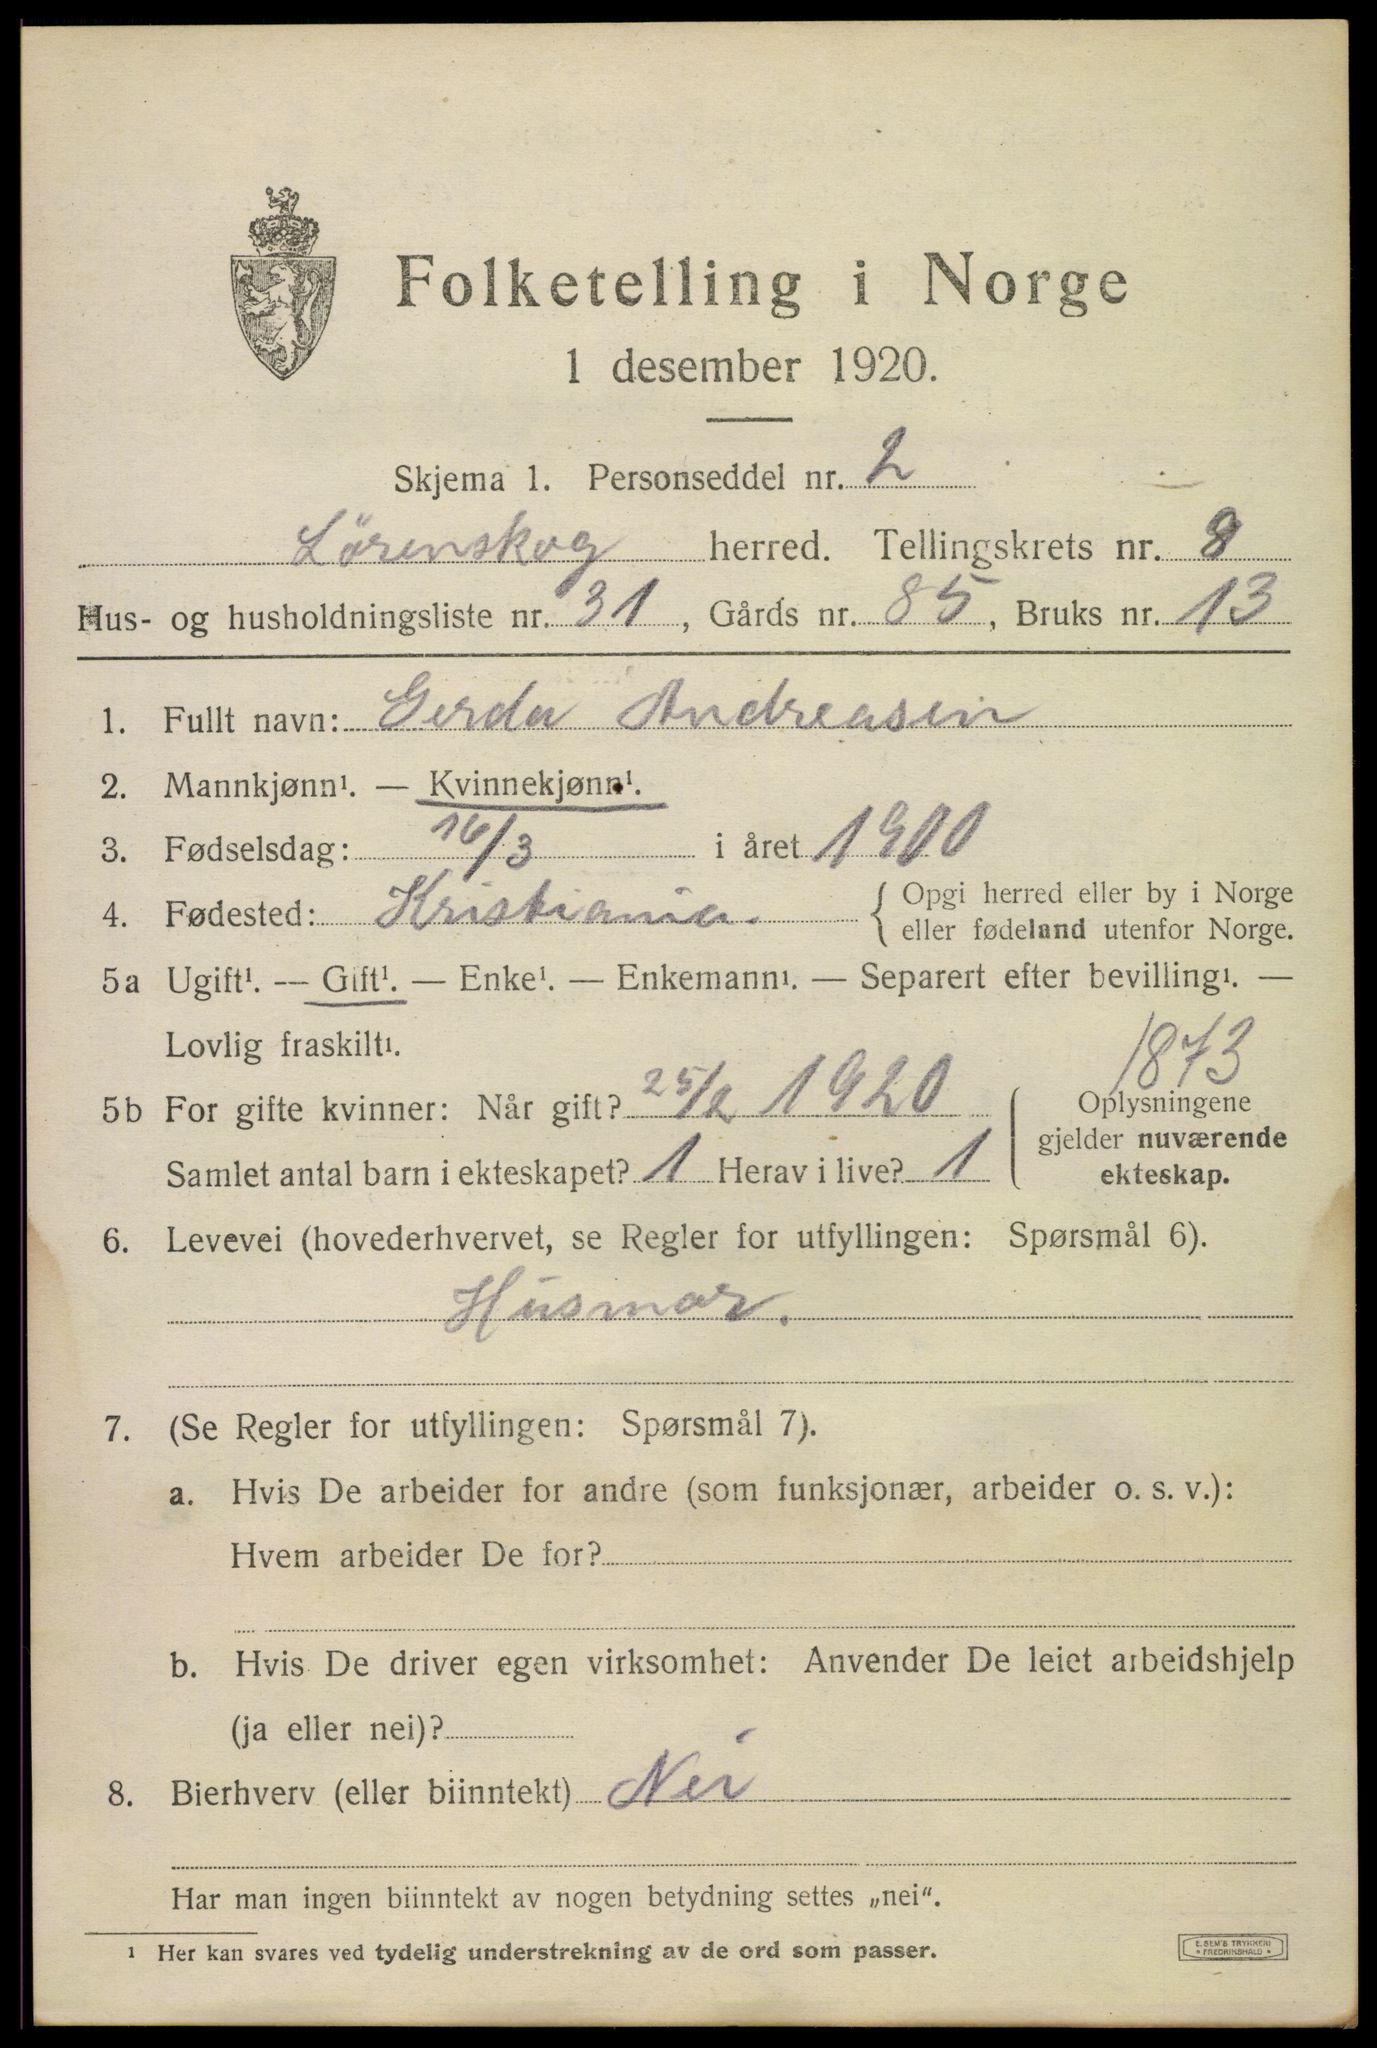 Folketelling i Norge
1 desember 1920.
Skjema 1. Personseddel nr. 2
Lörenskog herred. Tellingskrets nr. 8
Hus- og husholdningsliste nr. 31, Gårds nr. 85, Bruks nr. 13
1. Fullt navn: Gerda Andreasen
2. Mannkjønn¹. — Kvinnekjønn¹.
3. Fødselsdag: 16/3 i året 1900
4. Fødested: Kristiania. { Opgi herred eller by i Norge
eller fødeland utenfor Norge.
5a Ugift¹. — Gift¹. — Enke¹. — Enkemann¹. — Separert efter bevilling¹. —
Lovlig fraskilt¹.
1873
5b For gifte kvinner: Når gift? 25/2 1920
Samlet antal barn i ekteskapet? 1 Herav i live? 1
Oplysningene
gjelder nuværende
ekteskap.
6. Levevei (hovederhvervet, se Regler for utfyllingen: Spørsmål 6).
Husmor.
7. (Se Regler for utfyllingen: Spørsmål 7).
a. Hvis De arbeider for andre (som funksjonær, arbeider o. s. v.):
Hvem arbeider De for?
b. Hvis De driver egen virksomhet: Anvender De leiet arbeidshjelp
(ja eller nei)?
8. Bierhverv (eller biinntekt) Nei
Har man ingen biinntekt av nogen betydning settes „nei“.
¹ Her kan svares ved tydelig understrekning av de ord som passer.
E. SEM'S TRYKKERI
• FREDRIKSHALD •